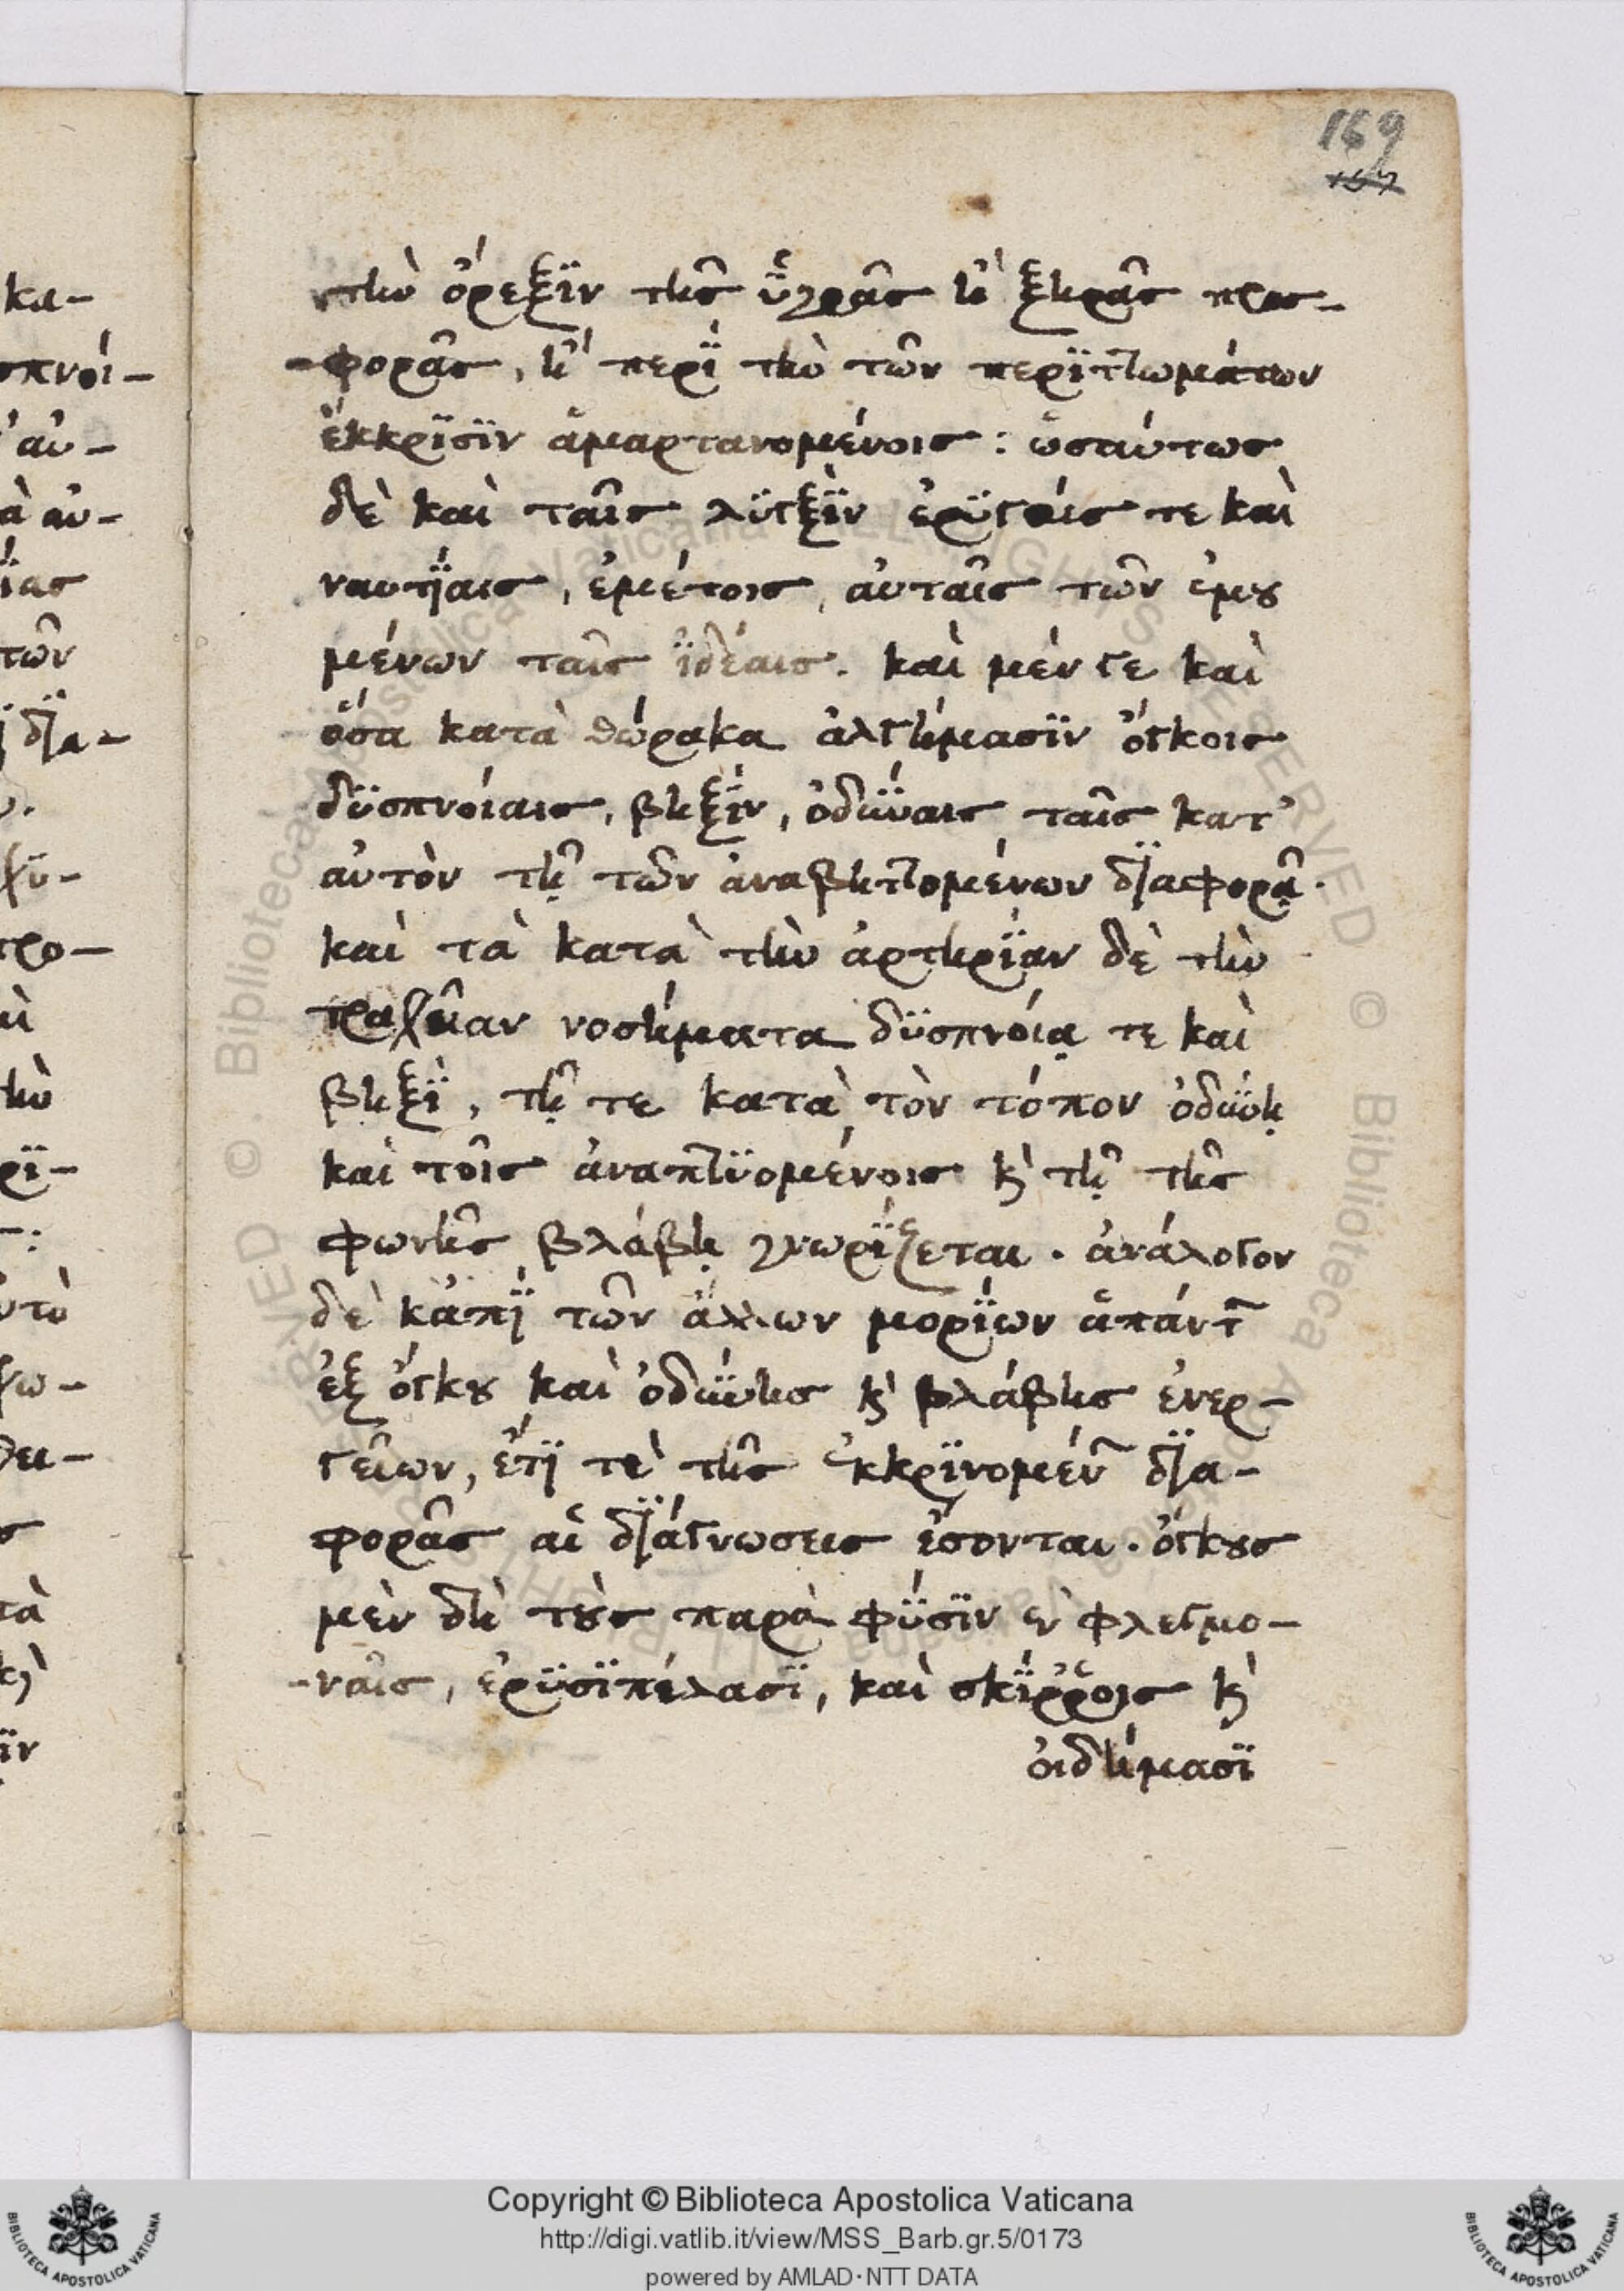 169
167
κα-
σπνοί-
αὐ-
ὰ αὐ-
ίας
τῶν
δϊα-
ρϊ-
τὴν ὄρεξϊν τῆς ὑγρᾶς ἢ ξηρᾶς προσ-
-φορᾶς, ἢ περὶ τὴν τῶν περϊττωμάτων
ἔκκρϊσϊν ἁμαρτανομένοις: ὡσαύτως
δὲ καὶ ταῖς λϋγξὶν ἐρϋγαίς τε καὶ
ναυτΐαις, ἐμέτοις, αὐταῖς τῶν ἐμȣ
μένων ταῖς ϊδέαις. καὶ μέν γε καὶ
ὅσα κατὰ θώρακα ἀλγήμασϊν ὄγκοις
δϋσπνοίαις, βηξΐν, ὀδΰναις ταῖς κατ'
αὐτὸν τῇ τῶν ἀναβηττομένων δϊαφορᾷ.
καὶ τὰ κατὰ τὴν ἀρτηρΐαν δὲ τὴν
τραχεῖαν νοσήματα δϋσπνοίᾳ τε καὶ
βηξῒ, τῇ τε κατὰ τὸν τόπον ὀδΰνῃ
καὶ τοῖς ἀναπτϋομένοις κ̀ τῇ τῆς
φωνῆς βλάβῃ γνωρΐζεται. ἀνάλογον
δὲ κἀπῒ τῶν ἄλλων μορΐων ἁπάντ̃
ἐξ ὄγκȣ καὶ ὀδΰνης κ̀ βλάβης ἐνερ-
γειῶν, ἔτϊ τὲ τῆς ἐκκρϊνομέν̃ δϊα-
φορᾶς αἱ δϊάγνωσεις ἔσονται. ὄγκȣς
μὲν δὴ τȣ̀ς παρὰ φΰσϊν ἐν φλεγμο-
-ναῖς, ἐρϋσϊπέλασϊ, καὶ σκΐῤῥοις κ̀
οἰδήμασϊ
Copyright © Biblioteca Apostolica Vaticana
http://digi.vatlib.it/view/MSS_Barb.gr.5/0173
powered by AMLAD·NTT DATA